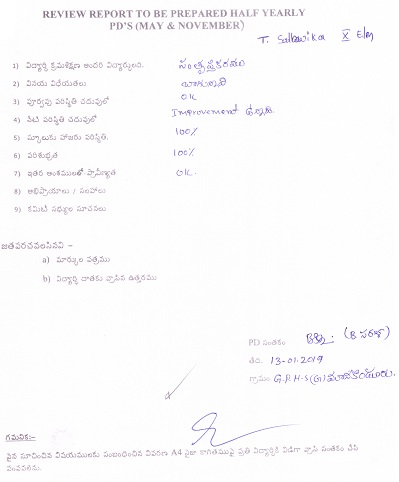 REVIEW REPORT TO BE PREPARED HALF YEARLY
PD'S (MAY & NOVEMBER)
T. Sathwika X E/m
1) విద్యార్థి క్రమశిక్షణ అందరి విద్యార్థులది. సంతృప్తికరము
2) వినయ విధేయతలు బాగున్నవి
3) పూర్వపు పరిస్థితి చదువులో OK
4) నేటి పరిస్థితి చదువులో Improvement ఉన్నది.
5) స్కూలుకు హాజరు పరిస్థితి. 100%
6) పరిశుభ్రత 100%
7) ఇతర అంశములతో ప్రావీణ్యత OK.
8) అభిప్రాయాలు / సలహాలు
9) కమిటీ సభ్యుల సూచనలు
జతపరచవలసినవి :-
a) మార్కుల పత్రము
b) విద్యార్థి దాతకు వ్రాసిన ఉత్తరము
PD సంతకం
తేది. 13-01-2019
గ్రామం G.P.H-S(G)
గమనిక:-
పైన సూచించిన విషయములకు సంబంధించిన వివరణ A4 సైజు కాగితముపై ప్రతి విద్యార్థికి విడిగా వ్రాసి సంతకం చేసి
పంపవలెను.